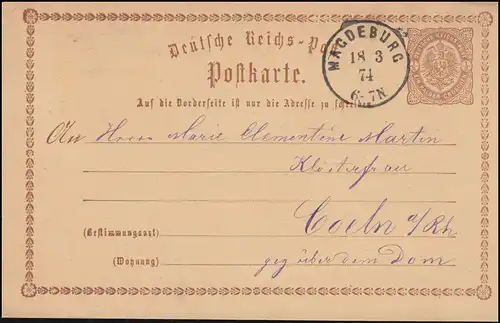 Deutsche Reichs-Post
Postkarte.
MAGDEBURG
18 3
74
6-7N
Auf die Vorderseite ist nur die Adresse zu schreiben.
An Maria Clementine Martin
Klosterfrau
Coeln a/Rh.
(Bestimmungsort)
(Wohnung)
gegenüber dem Dom